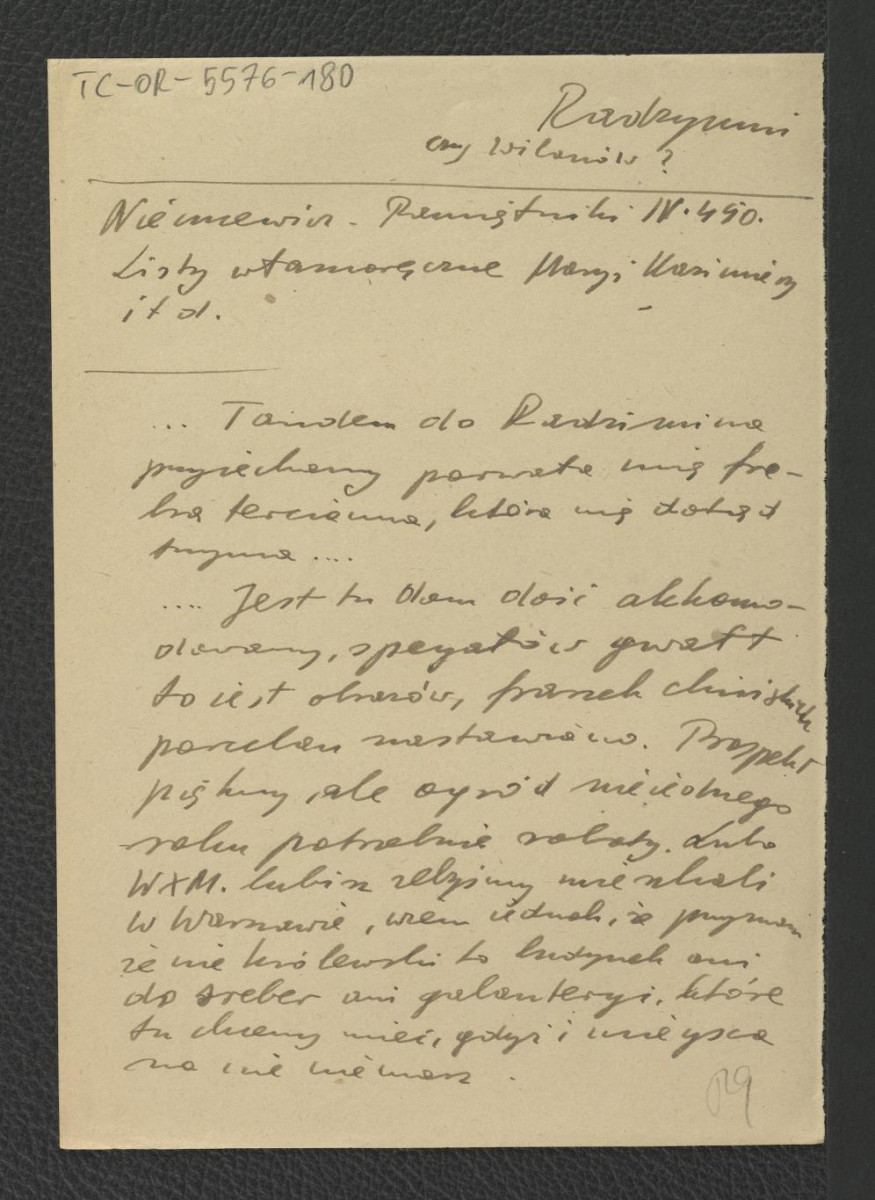 TC-OR-5576-180
Radzymin
czy Wilanów?
Niemcewicz - Pamiętniki IV. 450.
Listy własnoręczne Maryi Kazimiery
i t d.
... Tandem do Radzimina
przyiechamy porwała mię fre-
bra tercianna, która mię dotąd
trzyma ....
.... Jest tu dom dość akkomo-
dowany, specyałów gwałt
to iest obrazów, fraszek chińskich
porcelan nastawiano. Prospekt
piękny, ale ogród nieiednego
roku potrzebuie roboty. Lubo
WXM. lubisz żebyśmy mieszkali
w Warszawie, wiem iednak, że przyznasz
że nie królewski to budynek ani
do sreber ani galanteryi, które
tu chcemy mieć, gdyż i mieysca
na nie niemasz.